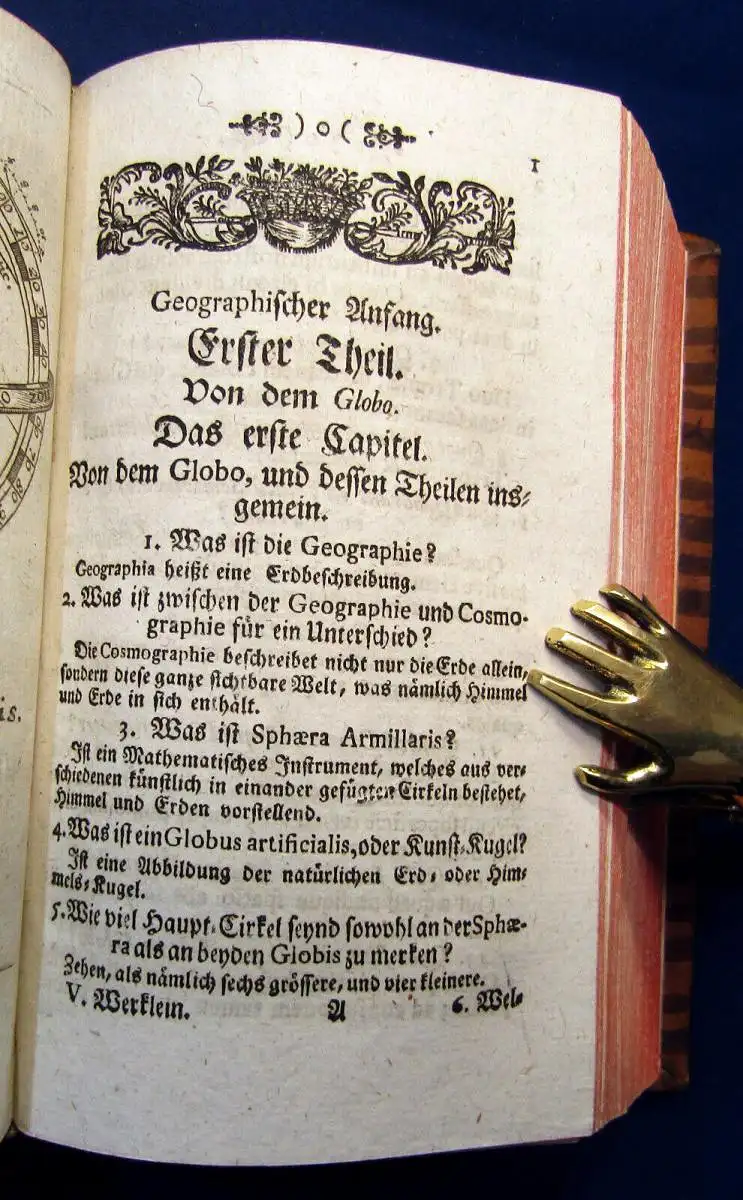 ) o (
1
Geographischer Anfang.
Erster Theil.
Von dem Globo.
Das erste Capitel.
Von dem Globo, und dessen Theilen ins-
gemein.
1. Was ist die Geographie?
Geographia heißt eine Erdbeschreibung.
2. Was ist zwischen der Geographie und Cosmo-
graphie für ein Unterschied?
Die Cosmographie beschreibet nicht nur die Erde allein,
sondern diese ganze sichtbare Welt, was nämlich Himmel
und Erde in sich enthält.
3. Was ist Sphæra Armillaris?
Ist ein Mathematisches Instrument, welches aus ver-
schiedenen künstlich in einander gefügten Cirkeln bestehet,
Himmel und Erden vorstellend.
4. Was ist ein Globus artificialis, oder Kunst-Kugel?
Ist eine Abbildung der natürlichen Erd- oder Him-
mels-Kugel.
5. Wie viel Haupt-Cirkel seynd sowohl an der Sphæ-
ra als an beyden Globis zu merken?
Zehen, als nämlich sechs grössere, und vier kleinere.
V. Werklein.
A
6. Wel-